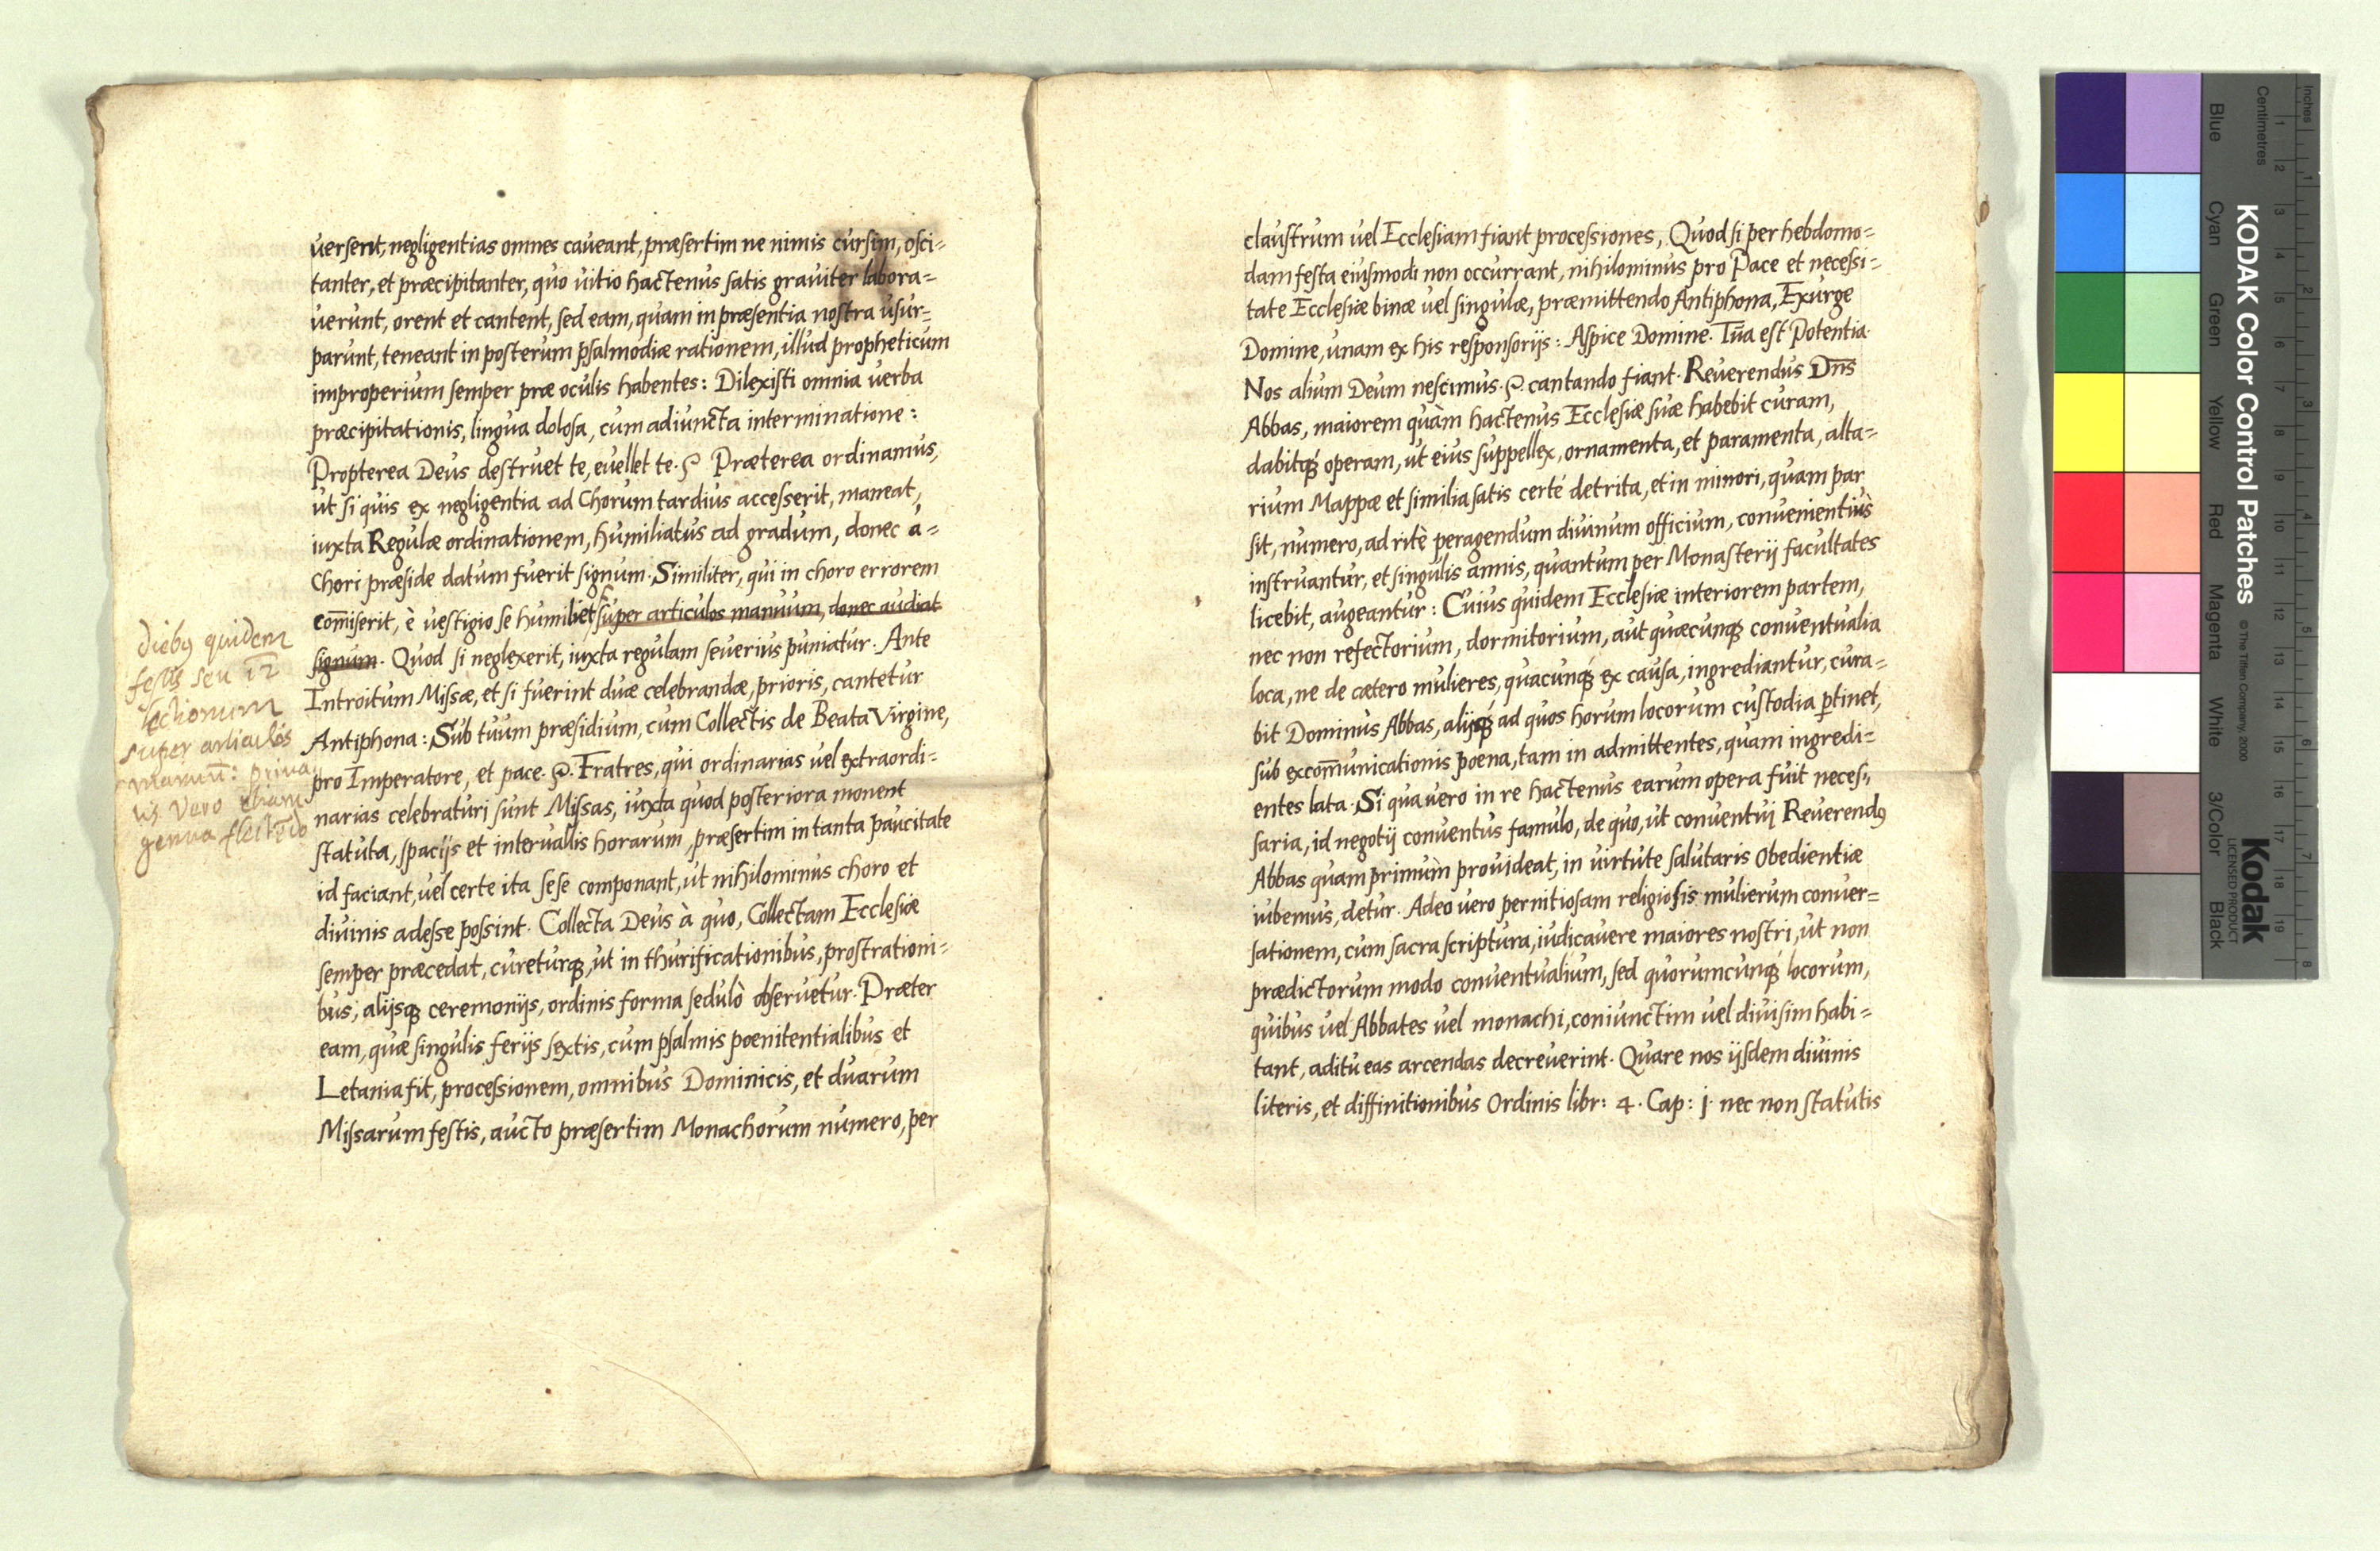 versent, negligentias omnes caveant, præsertim ne nimis cursim, osci=
tanter, et præcipitanter, quo uitio hactenus satis grauiter labora=
uerunt, orent et cantent, sed eam, quam in præsentia nostra usur=
parunt, teneant in posterum psalmodiæ rationem, illud propheticum
improperium semper præ oculis habentes: Dilexisti omnia uerba
præcipitationis, lingua dolosa, cum adiuncta interminatione:
Propterea Deus destruet te, euellet te. Præterea ordinamus,
ut si quis ex negligentia ad Chorum tardius accesserit, maneat,
iuxta Regulæ ordinationem, humiliatus ad gradum, donec á=
Chori præside datum fuerit signum. Similiter, qui in choro errorem
com̄iserit, è uestigio se humiliet super articulos manuum, donec audiat
signum. Quod si neglexerit, iuxta regulam seuerius puniatur. Ante
Introitum Missæ, et si fuerint duæ celebrandæ, prioris, cantetur
Antiphona: Sub tuum præsidium, cum Collectis de Beata Virgine,
pro Imperatore, et pace. Fratres, qui ordinarias uel extraordi=
narias celebraturi sunt Missas, iuxta quod posteriora monent
statuta, spacijs et interuallis horarum, præsertim in tanta paucitate
id faciant, uel certe ita sese componant, ut nihilominus choro et
diuinis adesse possint. Collecta Deus à quo, Collectam Ecclesiæ
semper præcedat, cureturq́, ut in thurificationibus, prostrationi=
bus, alijsq́ ceremonijs, ordinis forma sedulò obseruetur. Præter
eam, quæ singulis ferijs sextis, cum psalmis poenitentialibus et
Letania fit, processionem, omnibus Dominicis, et duarum
Missarum festis, aucto præsertim Monachorum numero, per
diebus quidem
festis seu 12
lectionum
super articulos
manuū: priua
tis vero etiam
genua flectēdo
claustrum uel Ecclesiam fiant processiones, Quod si per hebdomo=
dam festa eiusmodi non occurrant, nihilominus pro Pace et necessi=
tate Ecclesiæ binæ uel singulæ, præmittendo Antiphona, Exurge
Domine, unam ex his responsorijs: Aspice Domine. Tua est Potentia.
Nos alium Deum nescimus. cantando fiant. Reuerendus Dn̄s
Abbas, maiorem quàm hactenus Ecclesiæ suæ habebit curam,
dabitq́ operam, ut eius suppellex, ornamenta, et paramenta, alta=
rium Mappæ et similia satis certé detrita, et in minori, quam par
sit, numero, ad ritè peragendum diuinum officium, conuenientiùs
instruantur, et singulis annis, quantum per Monasterij facultates
licebit, augeantur: Cuius quidem Ecclesiæ interiorem partem,
nec non refectorium, dormitorium, aut quæcunq́ conuentualia
loca, ne de cætero mulieres, quacunq́ ex causa, ingrediantur, cura=
bit Dominus Abbas, alijsq́ ad quos horum locorum custodia p̲tinet,
sub excom̄unicationis poena, tam in admittentes, quam ingredi=
entes lata. Si qua uero in re hactenus earum opera fuit neces=
saria, id negotij conuentus famulo, de quo, ut conuentui Reuerendus
Abbas quamprimùm prouideat, in uirtute salutaris Obedientiæ
iubemus, detur. Adeo uero pernitiosam religiosis mulierum conuer=
sationem, cum sacra scriptura, iudicauere maiores nostri, ut non
prædictorum modo conuentualium, sed quorumcunq́ locorum,
quibus uel Abbates uel monachi, coniunctim uel diuisim habi=
tant, aditu eas arcendas decreuerint. Quare nos ijsdem diuinis
literis, et diffinitionibus Ordinis libr: 4. Cap: j. nec non statutis
KODAK Color Control Patches
© The Tiffen Company, 2000
Kodak
LICENSED PRODUCT
Blue
Cyan
Green
Yellow
Red
Magenta
White
3/Color
Black
Inches
1
2
3
4
5
6
7
8
Centimetres
1
2
3
4
5
6
7
8
9
10
11
12
13
14
15
16
17
18
19